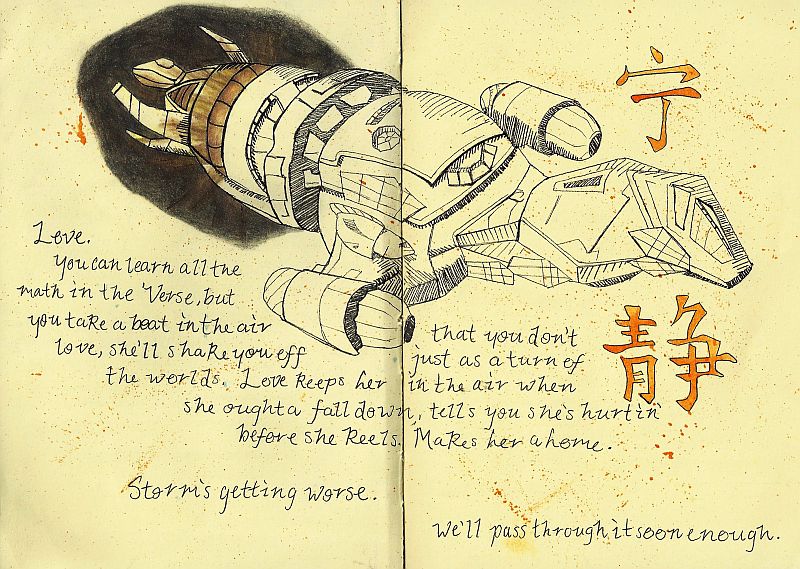 宁
静
Love.
You can learn all the
math in the 'Verse, but
you take a boat in the air
that you don't
love, she'll shake you off
just as a turn of
the worlds. Love keeps her in the air when
she oughta fall down, tells you she's hurtin'
before she keels. Makes her a home.
Storm's getting worse.
We'll pass through it soon enough.